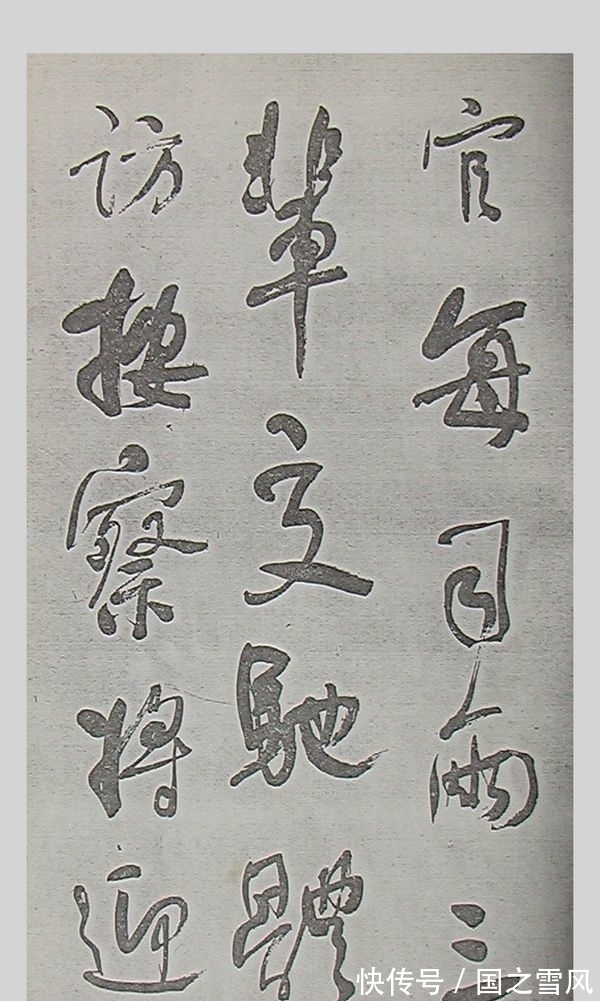 官每司兩三
輩交馳體
訪按察將迎
快传号 / 国之雪风